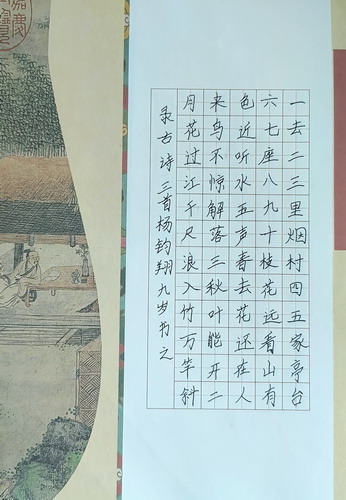 一去二三里烟村四五家亭台
六七座八九十枝花远看山有
色近听水五声春去花还在人
来鸟不惊解落三秋叶能开二
月花过江千尺浪入竹万竿斜
录古诗三首杨钧翔九岁书之